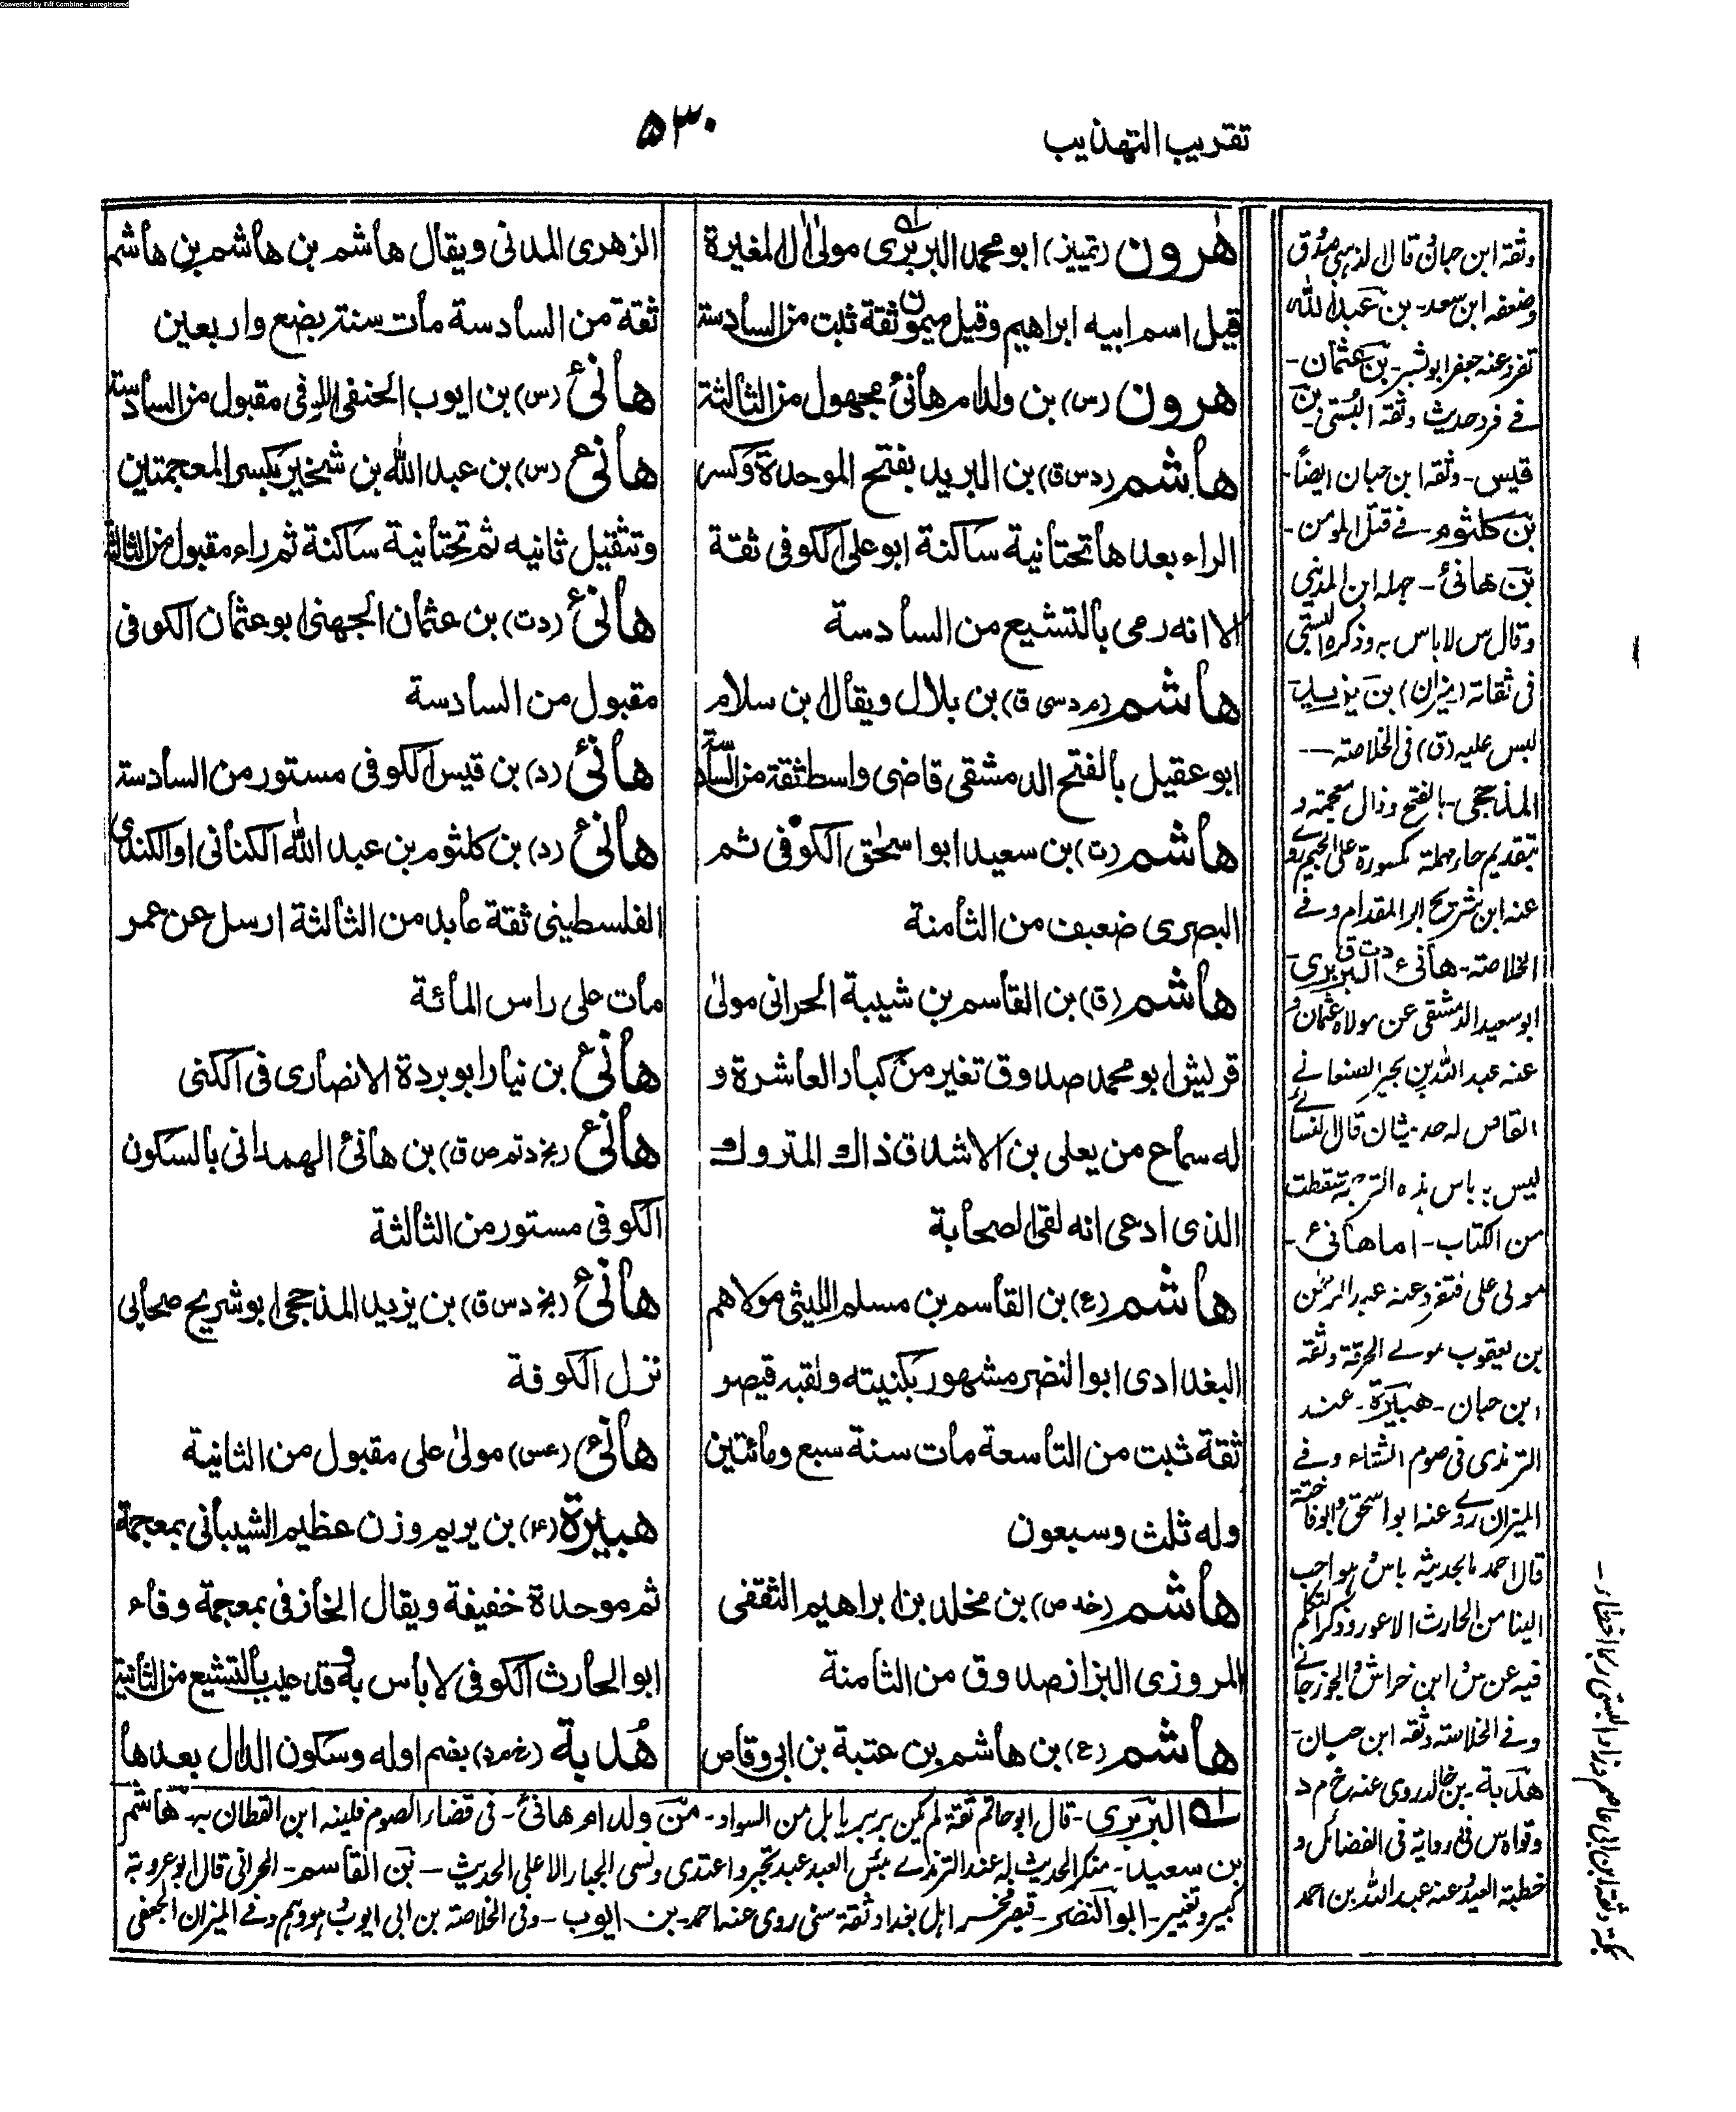 Converted by Tiff Combine - unregistered
تقريب التهذيب
٥٣٠
هٰرون (تمييز) ابو محمد البربرى مولىٰ اٰل المغيرة
قيل اسم ابيه ابراهيم وقيل ميمون ثقة ثبت من السادسة
هرون (س) بن ولد ام هانئ مجهول من الثالثة
هاشم (د س ق) بن البريد بفتح الموحدة وكسر
الراء بعدها تحتانية ساكنة ابو على الكوفى ثقة
الا انه رمى بالتشيع من السادسة
هاشم (م د سى ق) بن بلال ويقال ابن سلام
ابو عقيل بالفتح الدمشقى قاضى واسط ثقة من السادسة
هاشم (ت) بن سعيد ابو اسحٰق الكوفى ثم
البصرى ضعيف من الثامنة
هاشم (ق) بن القاسم بن شيبة الحرانى مولىٰ
قريش ابو محمد صدوق تغير من كبار العاشرة و
له سماع من يعلى بن الاشدق ذاك المتروك
الذى ادعى انه لقى الصحابة
هاشم (ع) بن القاسم بن مسلم الليثى مولاهم
البغدادى ابو النضر مشهور بكنيته ولقبه قيصر
ثقة ثبت من التاسعة مات سنة سبع ومائتين
وله ثلث وسبعون
هاشم (خد ص) بن مخلد بن ابراهيم الثقفى
المروزى البزاز صدوق من الثامنة
هاشم (ع) بن هاشم بن عتبة بن ابى وقاص
الزهرى المدنى ويقال هاشم بن هاشم بن هاشم
ثقة من السادسة مات سنة بضع واربعين
هانئ (س) بن ايوب الحنفى الكوفى مقبول من السادسة
هانئ (س) بن عبد الله بن شخير بكسر المعجمتين
وتثقيل ثانيه ثم تحتانية ساكنة ثم راء مقبول من الثالثة
هانئ (د ت) بن عثمان الجهنى ابو عثمان الكوفى
مقبول من السادسة
هانئ (د) بن قيس الكوفى مستور من السادسة
هانئ (د) بن كلثوم بن عبد الله الكنانى او الكندى
الفلسطينى ثقة عابد من الثالثة ارسل عن عمر
مات على راس المائة
هانئ بن نيار ابو بردة الانصارى فى الكنى
هانئ (بخ د تم ص ق) بن هانئ الهمدانى بالسكون
الكوفى مستور من الثالثة
هانئ (بخ د س ق) بن يزيد المذحجى ابو شريح صحابى
نزل الكوفة
هانئ (عس) مولىٰ على مقبول من الثانية
هبيرة (٤) بن يريم وزن عظيم الشيبانى بمعجمة
ثم موحدة خفيفة ويقال الخارفى بمعجمة وفاء
ابو الحارث الكوفى لا باس به وقد عيب بالتشيع من الثانية
هُدبة (خ م د) بضم اوله وسكون الدال بعدها
وثقه ابن حبان قال الذهبى صدوق
وضعفه ابن سعد - بن عبد الله
تفرد عنه جعفر ابو بشير - بن عثمان -
فے فرد حديث وثقه البستى - بن
قيس - وثقه ابن حبان ايضاً -
بن كلثوم - فے قتل المومن -
بن هانئ - جهله ابن المدينى
وقال س لا باس به وذكره البستى
فى ثقاته (ميزان) بن يزيد
ليس عليه (ق) فى الخلاصة —
المذحجى - بالفتح وذال معجمة و
بتقديم حاء مهملة مكسورة على الجيم روے
عنه ابن شريح ابو المقدام وفے
الخلاصة - هانئ د ت ق البربرى -
ابو سعيد الدمشقى عن مولاه عثمان و
عنه عبد الله بن بحير الصنعانے
القاص له حديثان قال النسائے
ليس به باس هذه الترجمة سقطت
من الكتاب - اما هانئ -
مولى على فتفرد عنه عبد الرحمٰن
بن يعقوب مولے الحرقة وثقه
ابن حبان - هبيرة - عند
الترمذى فى صوم الشتاء وفے
الميزان روے عنه ابو اسحق وابو فاختة
قال احمد لا بحديثه باس هو احب
الينا من الحارث الاعور وذكر التكلم
فيه عن س وابن خراش والجوزجانے
وفے الخلاصة وثقه ابن حبان -
هدبة - بن خالد روى عنه خ م د
وقواه س فى رواية فى الفضائل و
خطبة العيد وعنه عبد الله بن احمد
له البربرى - قال ابو حاتم ثقة لم يكن بربريا بل من السواد - من ولد ام هانئ - فى قضاء الصوم فلينه ابن القطان به - هاشم
بن سعيد - منكر الحديث له عند الترمذے بئس العبد عبد تجبر واعتدى ونسى الجبار الاعلى الحديث — بن القاسم - الحرانى قال ابو عروبة
كبير وتغير - ابو النضر - قيصر فخر اهل بغداد ثقة سنى روى عنه احمد - بن ايوب - وفى الخلاصة بن ابى ايوب وهو وهم وفے الميزان الجعفى